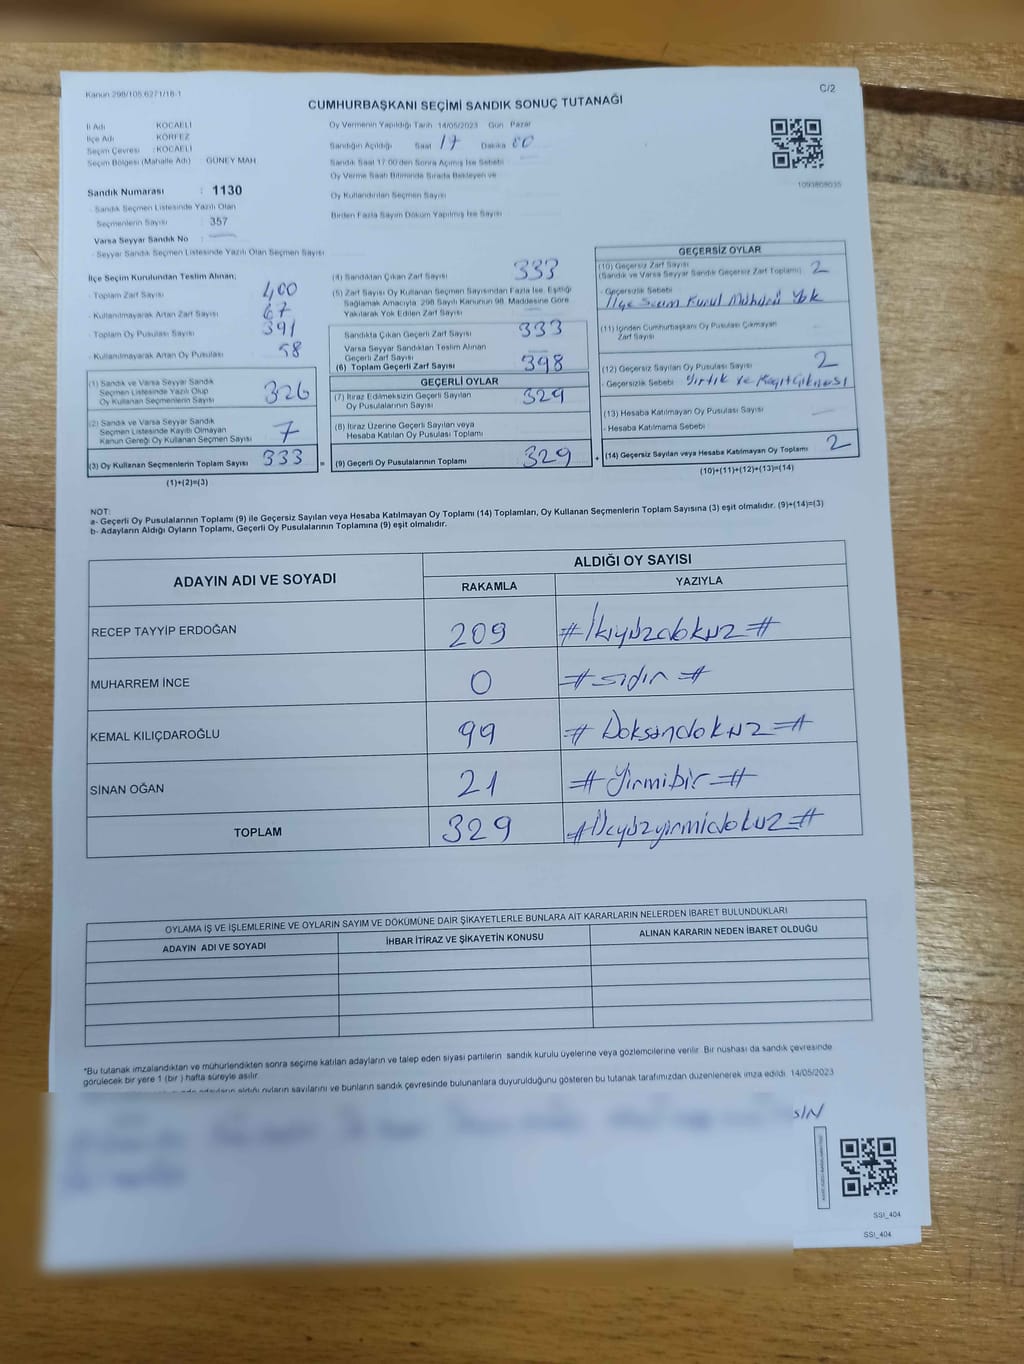 Kanun 298/105 6271/18-1
C/2
CUMHURBAŞKANI SEÇİMİ SANDIK SONUÇ TUTANAĞI
İl Adı KOCAELİ
İlçe Adı KÖRFEZ
Seçim Çevresi : KOCAELİ
Seçim Bölgesi (Mahalle Adı) GÜNEY MAH.
Sandık Numarası : 1130
- Sandık Seçmen Listesinde Yazılı Olan
Seçmenlerin Sayısı : 357
Varsa Seyyar Sandık No :
- Seyyar Sandık Seçmen Listesinde Yazılı Olan Seçmen Sayısı
Oy Vermenin Yapıldığı Tarih 14/05/2023 Gün Pazar
Sandığın Açıldığı Saat 17 Dakika
Sandık Saat 17:00'den Sonra Açılmış İse Sebebi
Oy Verme Saati Bitiminde Sırada Bekleyen ve
Oy Kullandırılan Seçmen Sayısı
Birden Fazla Sayım Döküm Yapılmış İse Sayısı
1093808035
İlçe Seçim Kurulundan Teslim Alınan;
- Toplam Zarf Sayısı 400
- Kullanılmayarak Artan Zarf Sayısı 67
- Toplam Oy Pusulası Sayısı 391
- Kullanılmayarak Artan Oy Pusulası 58
(1) Sandık ve Varsa Seyyar Sandık
Seçmen Listesinde Yazılı Olup
Oy Kullanan Seçmenlerin Sayısı 326
(2) Sandık ve Varsa Seyyar Sandık
Seçmen Listesinde Kayıtlı Olmayan
Kanun Gereği Oy Kullanan Seçmen Sayısı 7
(3) Oy Kullanan Seçmenlerin Toplam Sayısı 333 =
(1)+(2)=(3)
(4) Sandıktan Çıkan Zarf Sayısı 333
(5) Zarf Sayısı Oy Kullanan Seçmen Sayısından Fazla İse, Eşitliği
Sağlamak Amacıyla, 298 Sayılı Kanunun 98. Maddesine Göre
Yakılarak Yok Edilen Zarf Sayısı
Sandıkta Çıkan Geçerli Zarf Sayısı 333
Varsa Seyyar Sandıktan Teslim Alınan
Geçerli Zarf Sayısı
(6) Toplam Geçerli Zarf Sayısı 398
GEÇERLİ OYLAR
(7) İtiraz Edilmeksizin Geçerli Sayılan
Oy Pusulalarının Sayısı 329
(8) İtiraz Üzerine Geçerli Sayılan veya
Hesaba Katılan Oy Pusulası Toplamı
(9) Geçerli Oy Pusulalarının Toplamı 329 +
GEÇERSİZ OYLAR
(10) Geçersiz Zarf Sayısı
(Sandık ve Varsa Seyyar Sandık Geçersiz Zarf Toplamı) 2
- Geçersizlik Sebebi
İlçe Seçim Kurul Mühürü Yok
(11) İçinden Cumhurbaşkanı Oy Pusulası Çıkmayan
Zarf Sayısı
(12) Geçersiz Sayılan Oy Pusulası Sayısı 2
- Geçersizlik Sebebi Yırtık ve
(13) Hesaba Katılmayan Oy Pusulası Sayısı
- Hesaba Katılmama Sebebi
(14) Geçersiz Sayılan veya Hesaba Katılmayan Oy Toplamı 2
(10)+(11)+(12)+(13)=(14)
NOT:
a- Geçerli Oy Pusulalarının Toplamı (9) ile Geçersiz Sayılan veya Hesaba Katılmayan Oy Toplamı (14) Toplamları, Oy Kullanan Seçmenlerin Toplam Sayısına (3) eşit olmalıdır. (9)+(14)=(3)
b- Adayların Aldığı Oyların Toplamı, Geçerli Oy Pusulalarının Toplamına (9) eşit olmalıdır.
ADAYIN ADI VE SOYADI
ALDIĞI OY SAYISI
RAKAMLA YAZIYLA
RECEP TAYYİP ERDOĞAN 209 #İkiyüzdokuz#
MUHARREM İNCE 0 #sıfır#
KEMAL KILIÇDAROĞLU 99 #Doksandokuz#
SİNAN OĞAN 21 #Yirmibir#
TOPLAM 329 #Üçyüzyirmidokuz#
OYLAMA İŞ VE İŞLEMLERİNE VE OYLARIN SAYIM VE DÖKÜMÜNE DAİR ŞİKAYETLERLE BUNLARA AİT KARARLARIN NELERDEN İBARET BULUNDUKLARI
ADAYIN ADI VE SOYADI İHBAR İTİRAZ VE ŞİKAYETİN KONUSU ALINAN KARARIN NEDEN İBARET OLDUĞU
*Bu tutanak imzalandıktan ve mühürlendikten sonra seçime katılan adayların ve talep eden siyasi partilerin sandık kurulu üyelerine veya gözlemcilerine verilir. Bir nüshası da sandık çevresinde
görülecek bir yere 1 (bir) hafta süreyle asılır.
aldığı oyların sayılarını ve bunların sandık çevresinde bulunanlara duyurulduğunu gösteren bu tutanak tarafımızdan düzenlenerek imza edildi. 14/05/2023
SİN
SSI_404
SSI_404